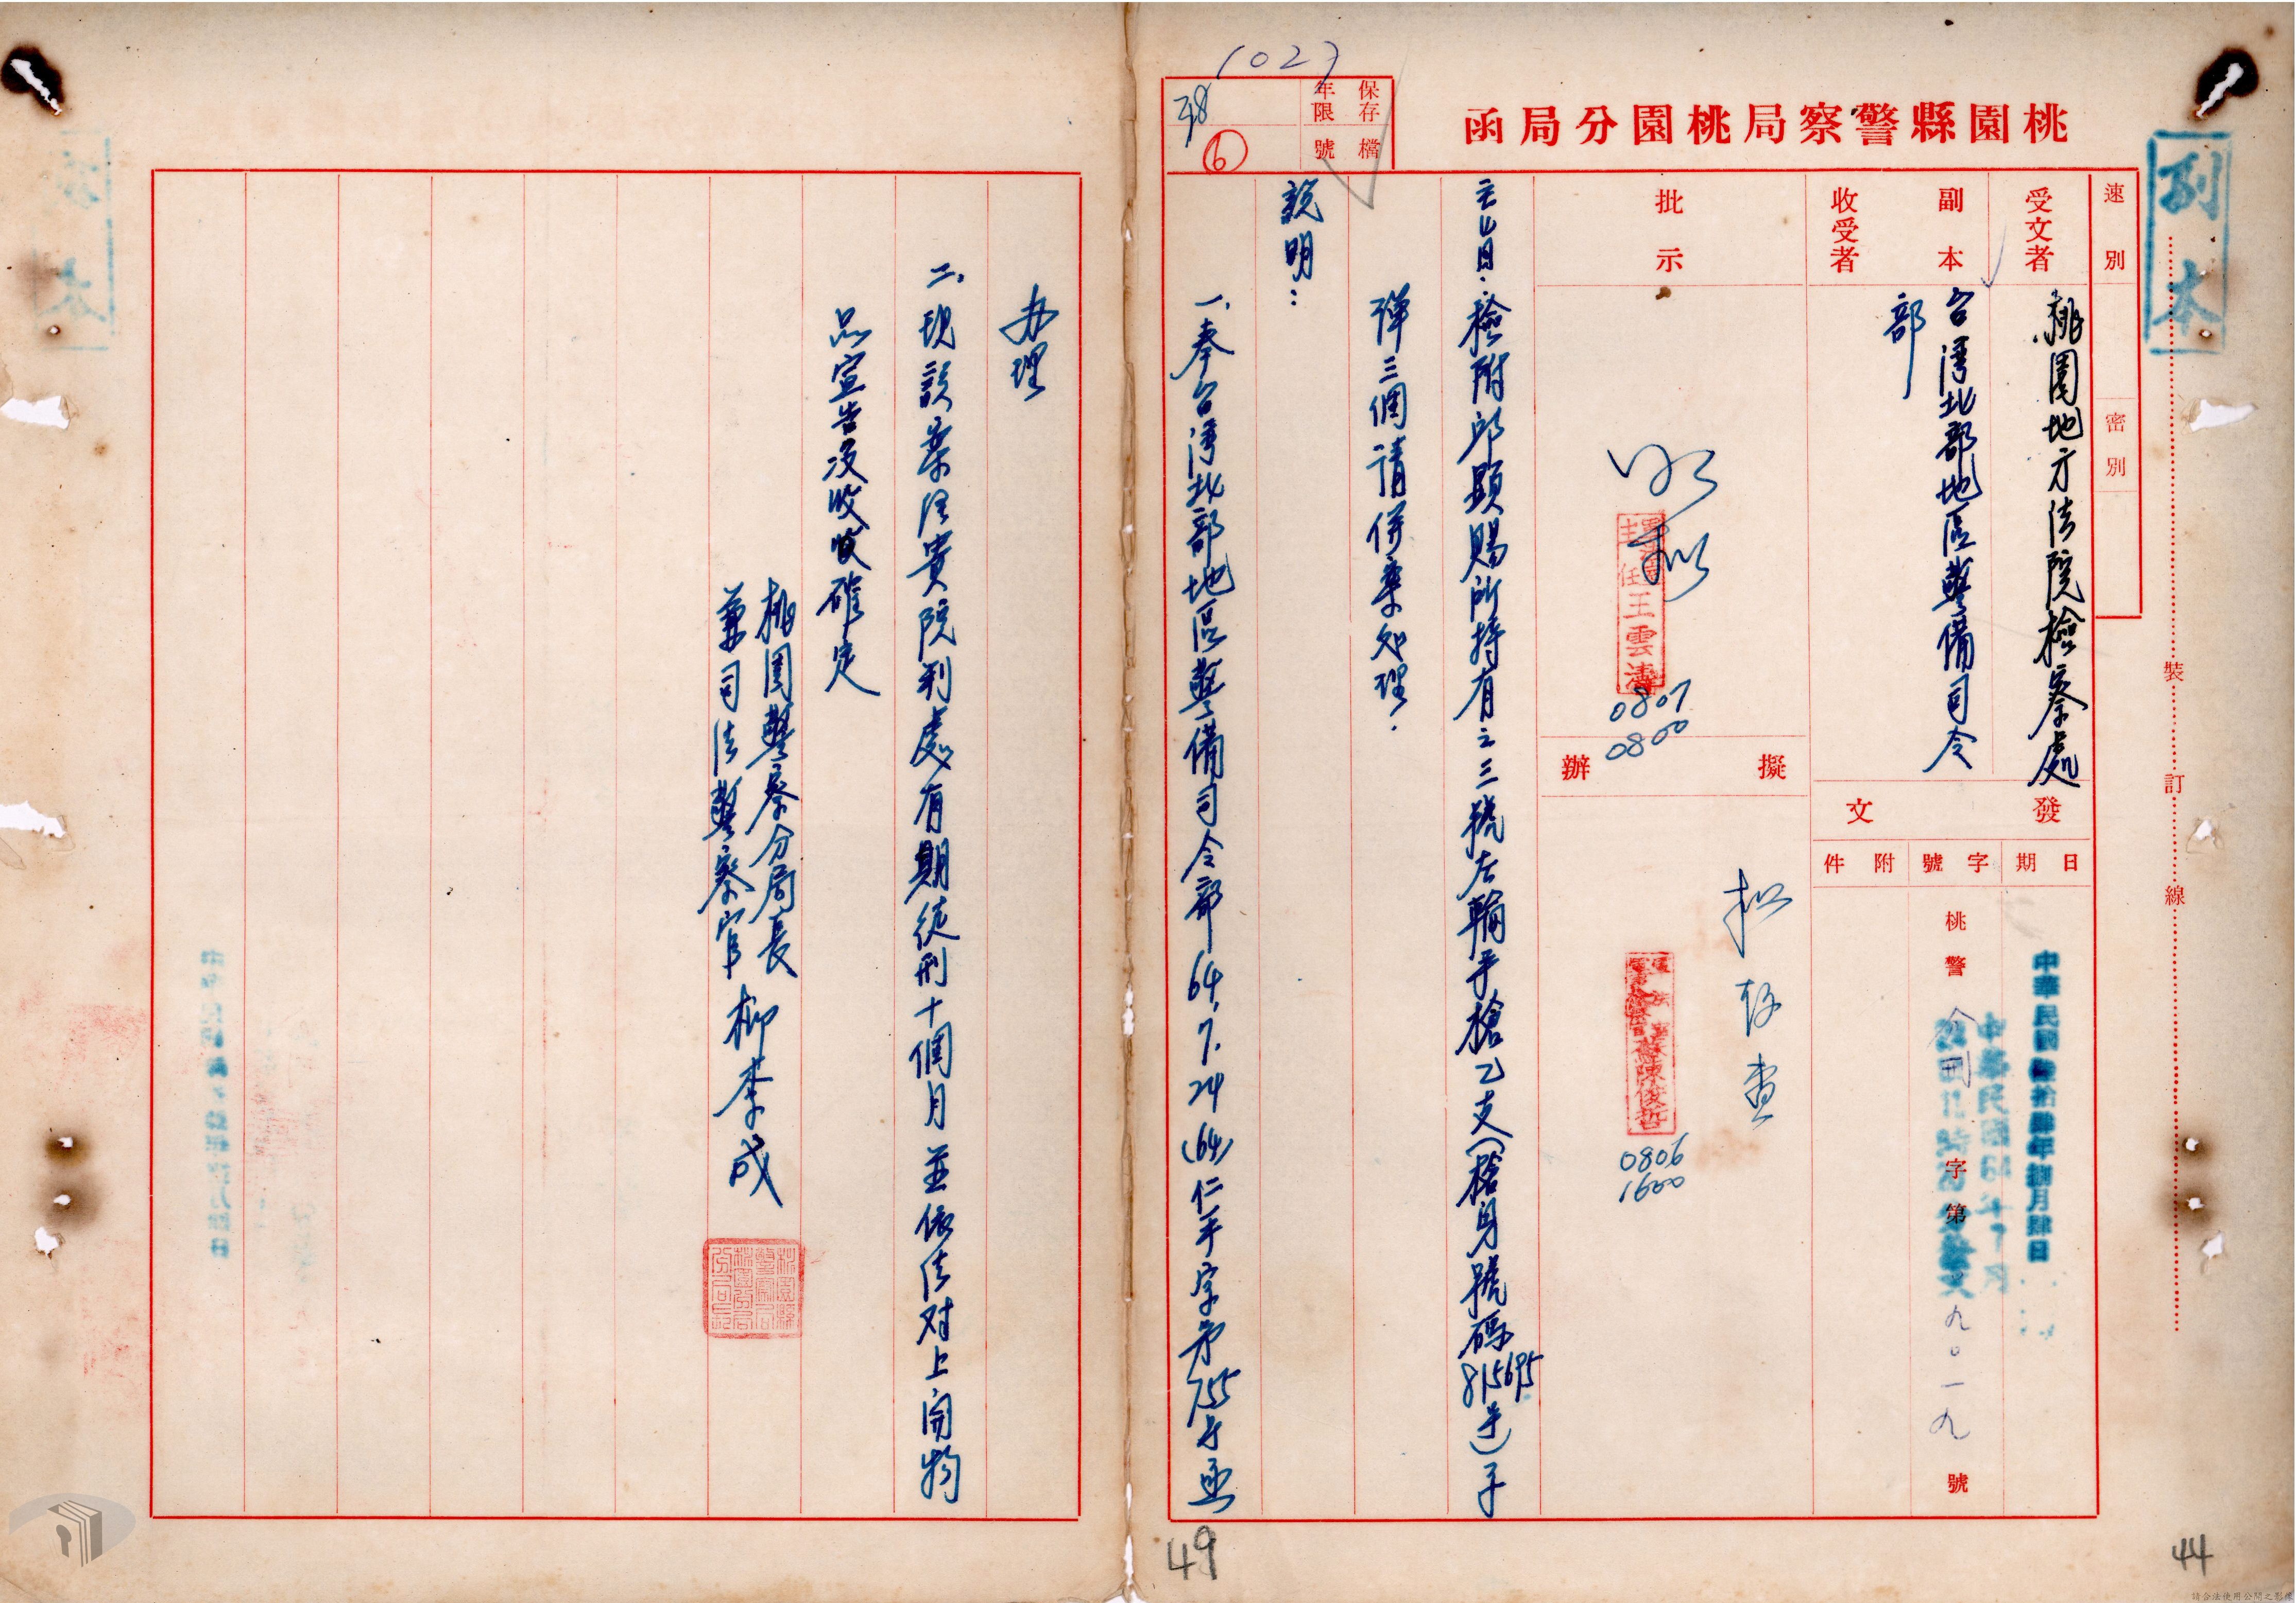 副本
桃園縣警察局桃園分局函
保存年限
檔號
78
6
速別
密別
受文者
桃園地方法院檢察處
副本收受者
台灣北部地區警備司令
部
發文
日期
字號
附件
中華民國陸拾肆年捌月肆日
桃警刑字第九〇一九號
批示
擬辦
王雲濤
0807
0800
擬存查
陳俊哲
0806
1600
主旨：檢附邱顯賜所持有之三號左輪手槍乙支（槍身號碼815695號）子
彈三個請併案处理．
說明：
一、奉台灣北部地區警備司令部64.7.24（64）仁平字第755号函
办理
二、現該案經貴院判處有期徒刑十個月並依法对上開物
品宣告沒收確定
桃園警察分局長
兼司法警察官 柳李成
裝訂線
49
44
請合法使用公開之影像